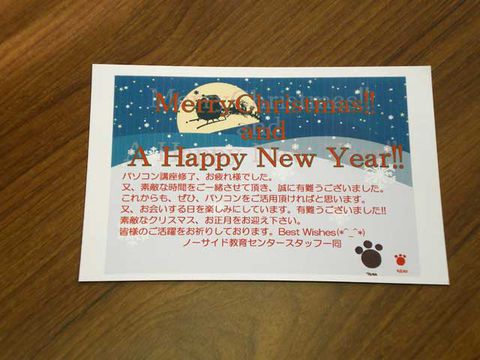 MerryChristmas!!
and
A Happy New Year!!
パソコン講座修了、お疲れ様でした。
又、素敵な時間をご一緒させて頂き、誠に有難うございました。
これからも、ぜひ、パソコンをご活用頂ければと思います。
又、お会いする日を楽しみにしています。有難うございました!!
素敵なクリスマス、お正月をお迎え下さい。
皆様のご活躍をお祈りしております。Best Wishes(*^_^*)
ノーサイド教育センタースタッフ一同